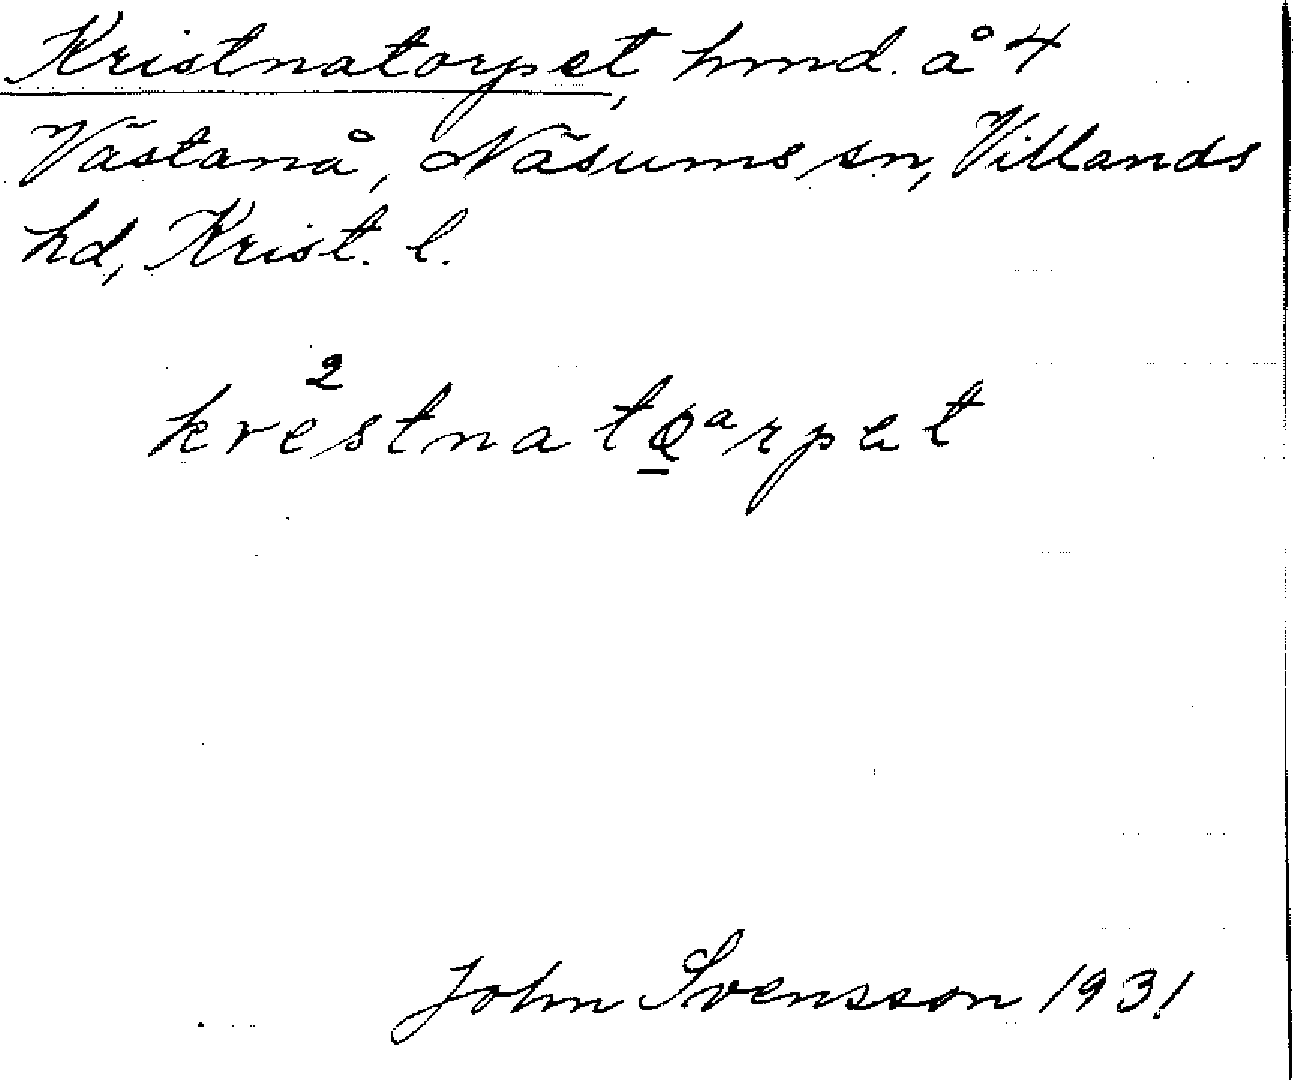 Kristnatorpet, hmd. å 4
Västanå, Näsums sn, Villands
hd, Krist. l.
2
krestnatǫᵃrpet
John Svensson 1931